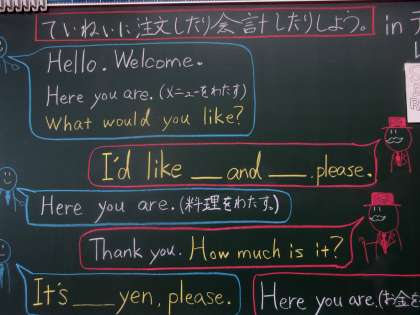 ていねいに注文したり会計したりしよう。 in
Hello. Welcome.
Here you are. (メニューをわたす)
What would you like?
I'd like __ and __. please.
Here you are. (料理をわたす。)
Thank you. How much is it?
It's ___ yen, please.
Here you are. (お金を